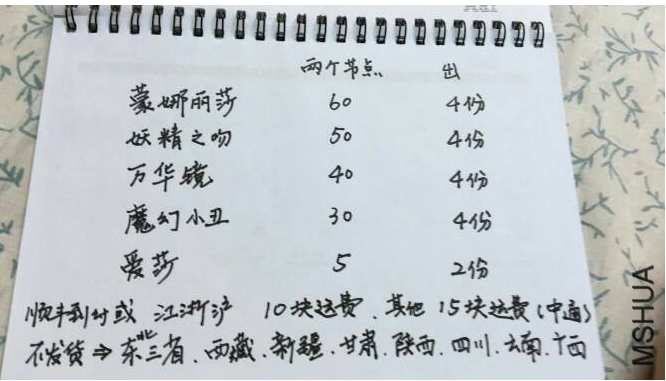 两个节点 出
蒙娜丽莎 60 4份
妖精之吻 50 4份
万华镜 40 4份
魔幻小丑 30 4份
爱莎 5 2份
顺丰到付或 江浙沪 10块运费、其他15块运费(中通)
不发货⇒东北三省、西藏、新疆、甘肃、陕西、四川、云南、广西
MSHUA